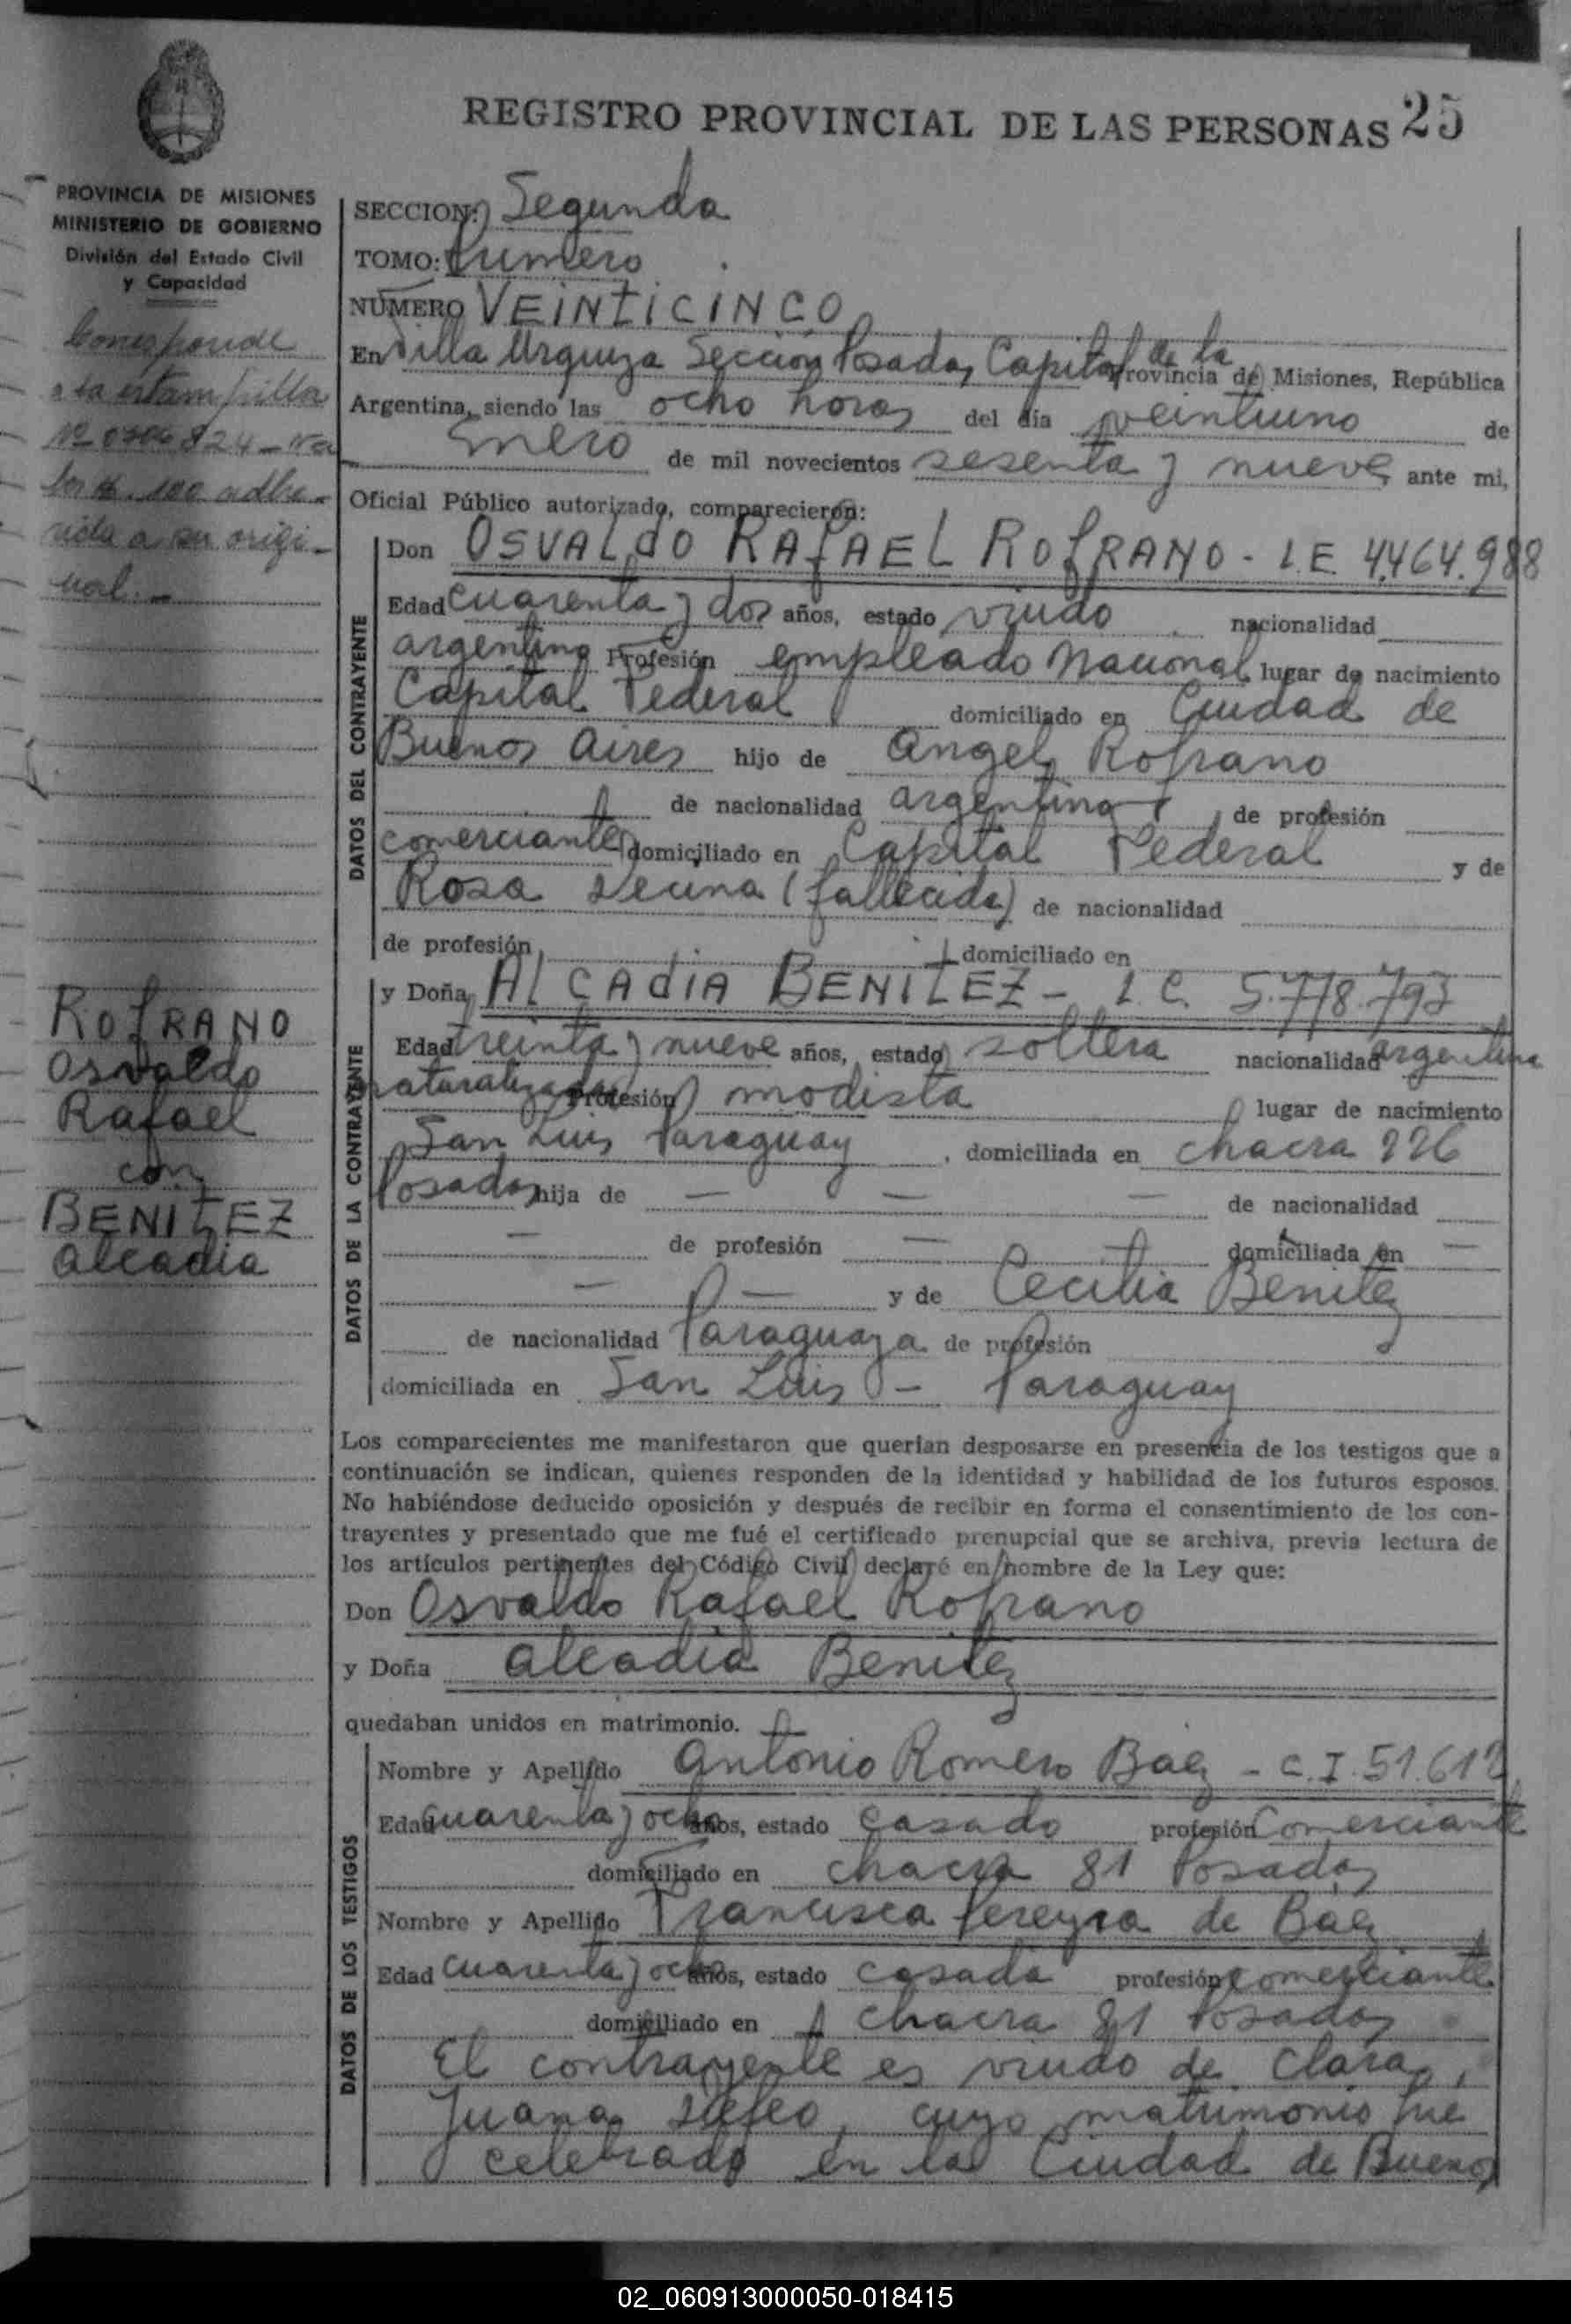 REGISTRO PROVINCIAL DE LAS PERSONAS 25
PROVINCIA DE MISIONES
MINISTERIO DE GOBIERNO
División del Estado Civil
y Capacidad
Corresponde
a la estampilla
Nº 0706824 - Va
lor $ 100 adhe-
rida a su origi-
nal.-
ROfRANO
Osvaldo
Rafael
con
BENITEZ
Alcadia
SECCION: Segunda
TOMO: Primero
NUMERO VEINTICINCO
En Villa Urquiza Seccion Posadas Capital de la Provincia de Misiones, República
Argentina, siendo las ocho horas del día veintiuno de
Enero de mil novecientos sesenta y nueve ante mi,
Oficial Público autorizado, comparecieron:
DATOS DEL CONTRAYENTE
Don OSVALdO RAfAEL ROfRANO - L.E. 4.464.988
Edad cuarenta y dos años, estado viudo nacionalidad
argentino Profesión empleado Nacional lugar de nacimiento
Capital Federal domiciliado en Ciudad de
Buenos Aires hijo de Angel Rofrano
de nacionalidad argentino de profesión
comerciante domiciliado en Capital Federal y de
Rosa (fallecida) de nacionalidad
de profesión domiciliado en
DATOS DE LA CONTRAYENTE
y Doña ALCAdIA BENITEZ - L.C. 5.778.793
Edad treinta y nueve años, estado soltera nacionalidad argentina
naturalizada Profesión modista lugar de nacimiento
San Luis Paraguay, domiciliada en chacra 226
Posadas hija de — — — de nacionalidad
— de profesión — domiciliada en —
— — y de Cecilia Benitez
de nacionalidad Paraguaya de profesión
domiciliada en San Luis - Paraguay
Los comparecientes me manifestaron que querían desposarse en presencia de los testigos que a
continuación se indican, quienes responden de la identidad y habilidad de los futuros esposos.
No habiéndose deducido oposición y después de recibir en forma el consentimiento de los con-
trayentes y presentado que me fué el certificado prenupcial que se archiva, previa lectura de
los artículos pertinentes del Código Civil declaré en nombre de la Ley que:
Don Osvaldo Rafael Rofrano
y Doña Alcadia Benitez
quedaban unidos en matrimonio.
DATOS DE LOS TESTIGOS
Nombre y Apellido Antonio Romero Baez - C.I. 51.612
Edad cuarenta y ocho años, estado casado profesión Comerciante
domiciliado en chacra 81 Posadas
Nombre y Apellido Francisca Pereyra de Baez
Edad cuarenta y ocho años, estado casada profesión comerciante
domiciliado en chacra 81 Posadas
El contrayente es viudo de Clara
Juana, cuyo matrimonio fue
celebrado en la Ciudad de Buenos
02_060913000050-018415